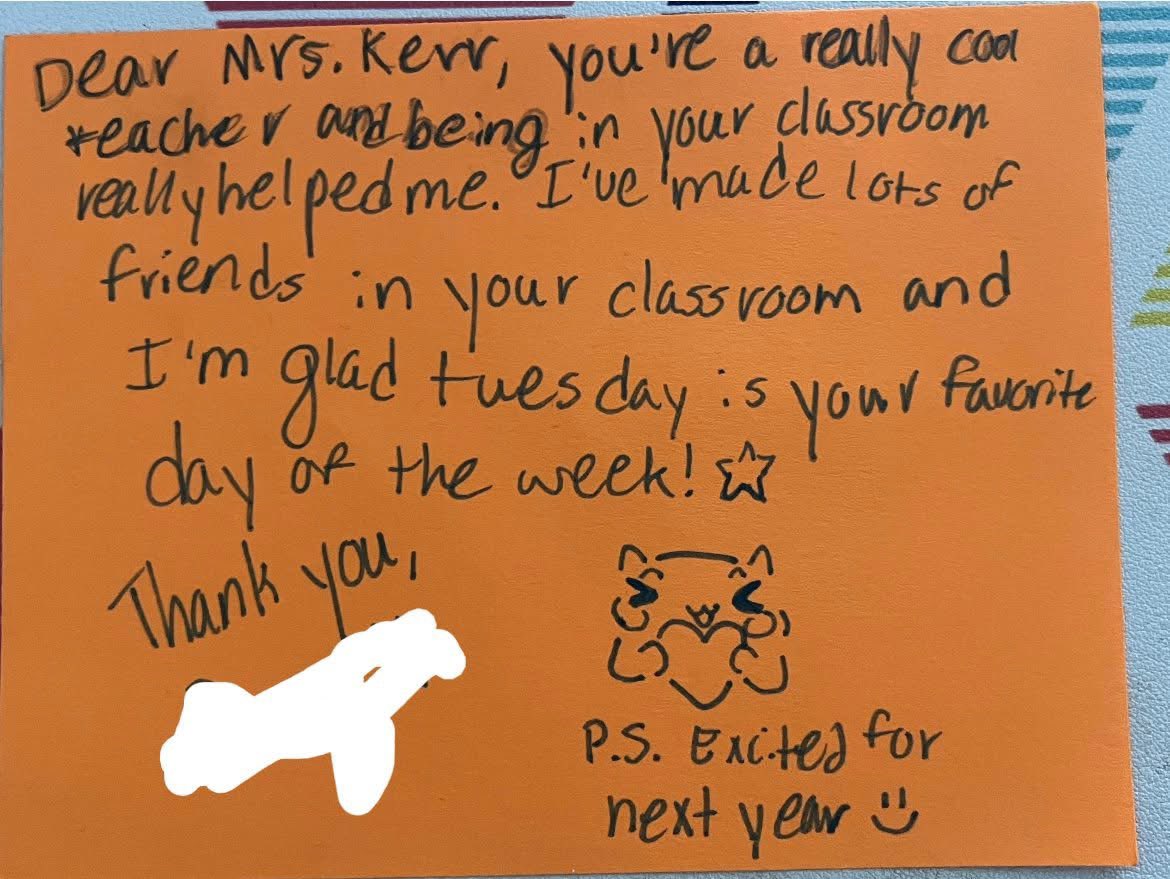 Dear Mrs. Kerr, you're a really cool
teacher and being in your classroom
really helped me. I've made lots of
friends in your classroom and
I'm glad tuesday is your favorite
day of the week!
Thank you,
P.S. Excited for
next year